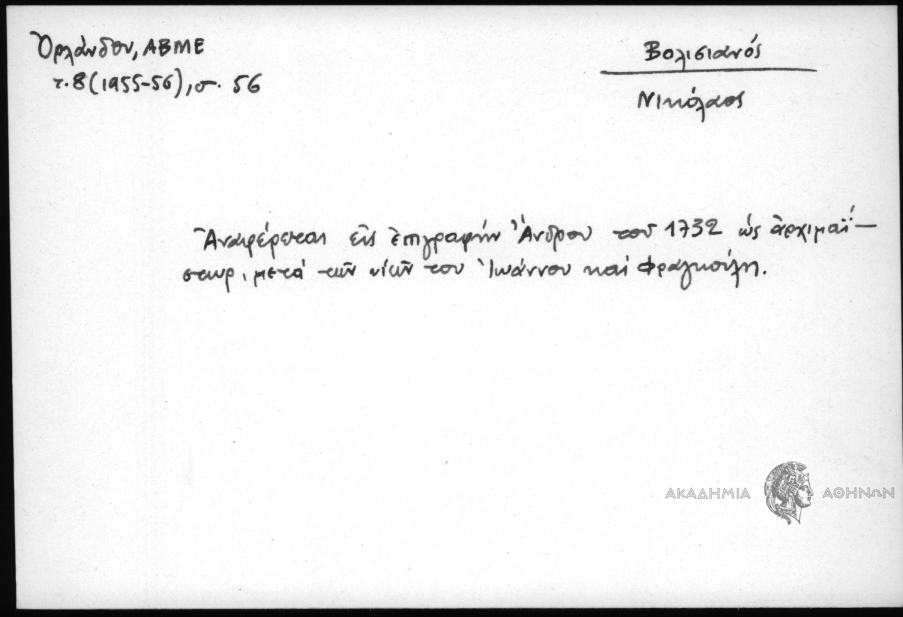 Ὀρλάνδου, ΑΒΜΕ
τ. 8 (1955-56), σ. 56
Βολισιανός
Νικόλαος
Ἀναφέρεται εἰς ἐπιγραφὴν Ἄνδρου τοῦ 1732 ὡς ἀρχιμαΐ-
στωρ, μετὰ τῶν υἱῶν του Ἰωάννου καὶ Φραγκούλη.
ΑΚΑΔΗΜΙΑ ΑΘΗΝΩΝ